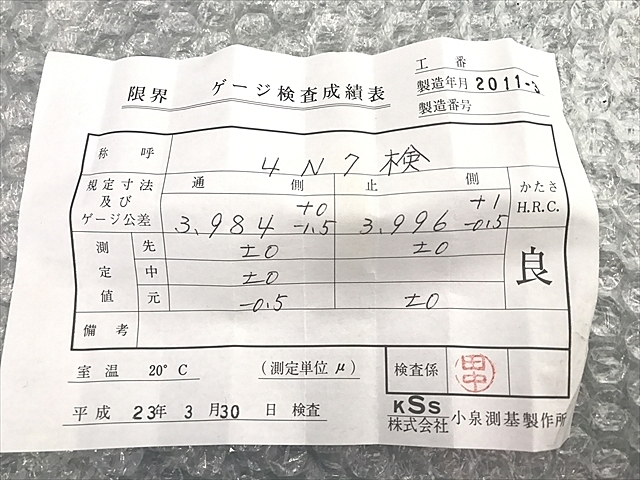 工 番
限界 ゲージ検査成績表
製造年月 2011-3
製造番号
称 呼 4 N 7 検
規定寸法 及び ゲージ公差
通 側 止 側
かたさ H.R.C.
+0 +1
3,984 -1.5 3,996 -0.5
測定値
先 ±0 ±0
中 ±0
元 -0.5 ±0
良
備 考
室 温 20°C (測定単位 μ)
検査係 田中
平成 23年 3月30日 検査
KSS
株式会社 小泉測基製作所